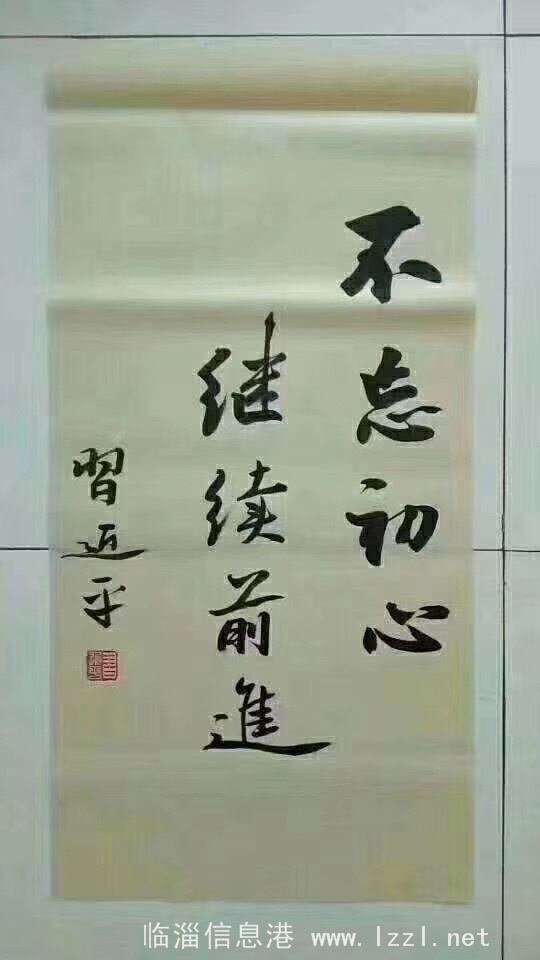 不忘初心
继续前進
習近平
临淄信息港 www.lzzl.net